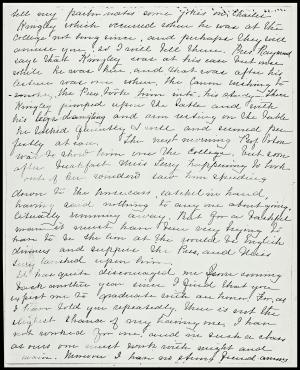 tell my father mates some jokes on Charles
Kingsley which occurred when he was at the
College not long since, and perhaps they will
amuse you, so I will tell them. Pres Raymond
says that Kingsley was at his ease but once
while he was here, and that was after his
lecture was over when, the lawn making to
the Pres. took him into his study. Then
Kingsley jumped upon the table and with
his legs dangling and arm resting on the table
he talked Quimby well, and seemed per-
fectly at ease. The next morning Prof Orton
was to show him over the College but soon
after breakfast Miss Terry happening to look
out of her window saw him speeding
down to the American, satchel in hand,
having said nothing to any one about going,
actually running away. But for a bashful
man it must have been very trying to
him to be the lion at the round of English
dinners and suppers the Pres. and Miss
Terry lavished upon him.
It has quite discouraged me from coming
back another year since I find that you
expect me to graduate with an honor. For, as
I have told you repeatedly, there is not the
slightest chance of my having one, I have
not worked for one, and in such a class
as ours one must work with might and
main. Moreover I have no strong friend among